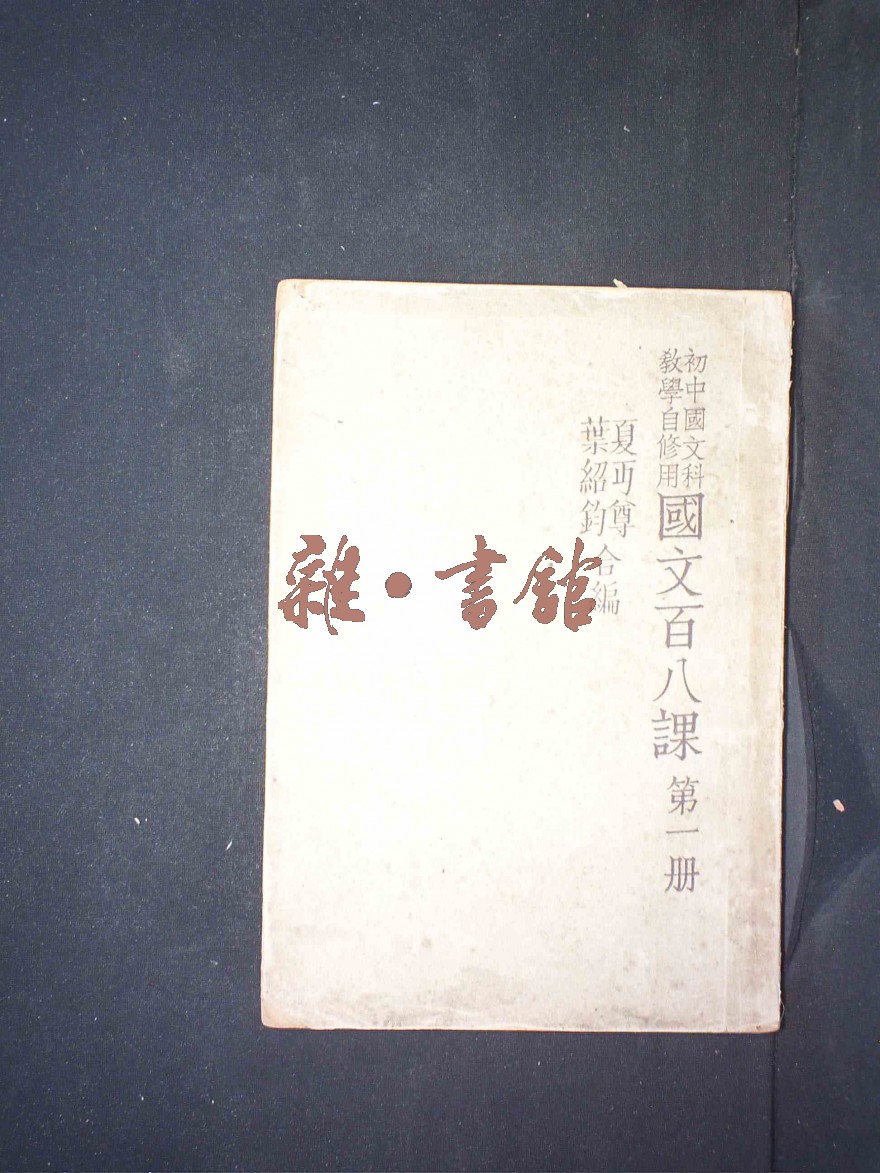 初中國文科
教學自修用
國文百八課 第一册
夏丏尊
葉紹鈞
合編
雜•書館